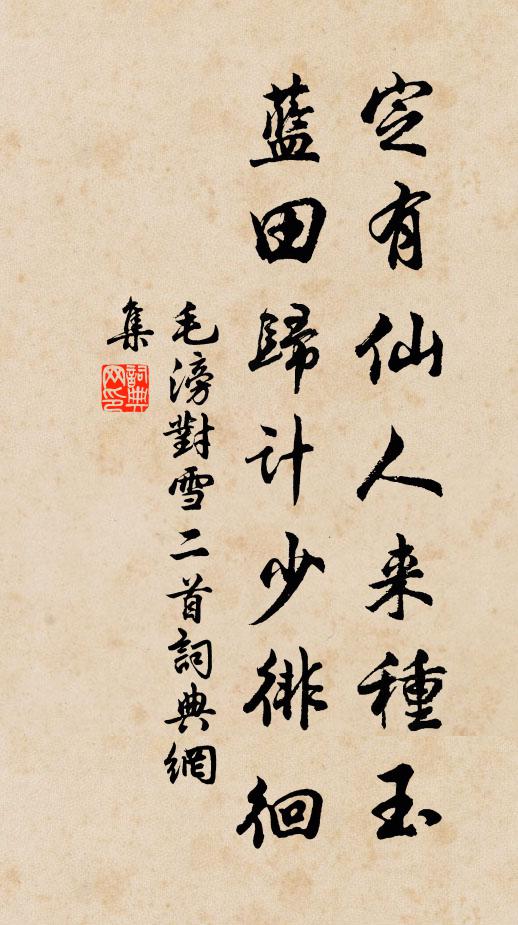 定有仙人来種玉
藍田歸計少徘徊
毛滂對雪二首詞典網
集
詞典网印